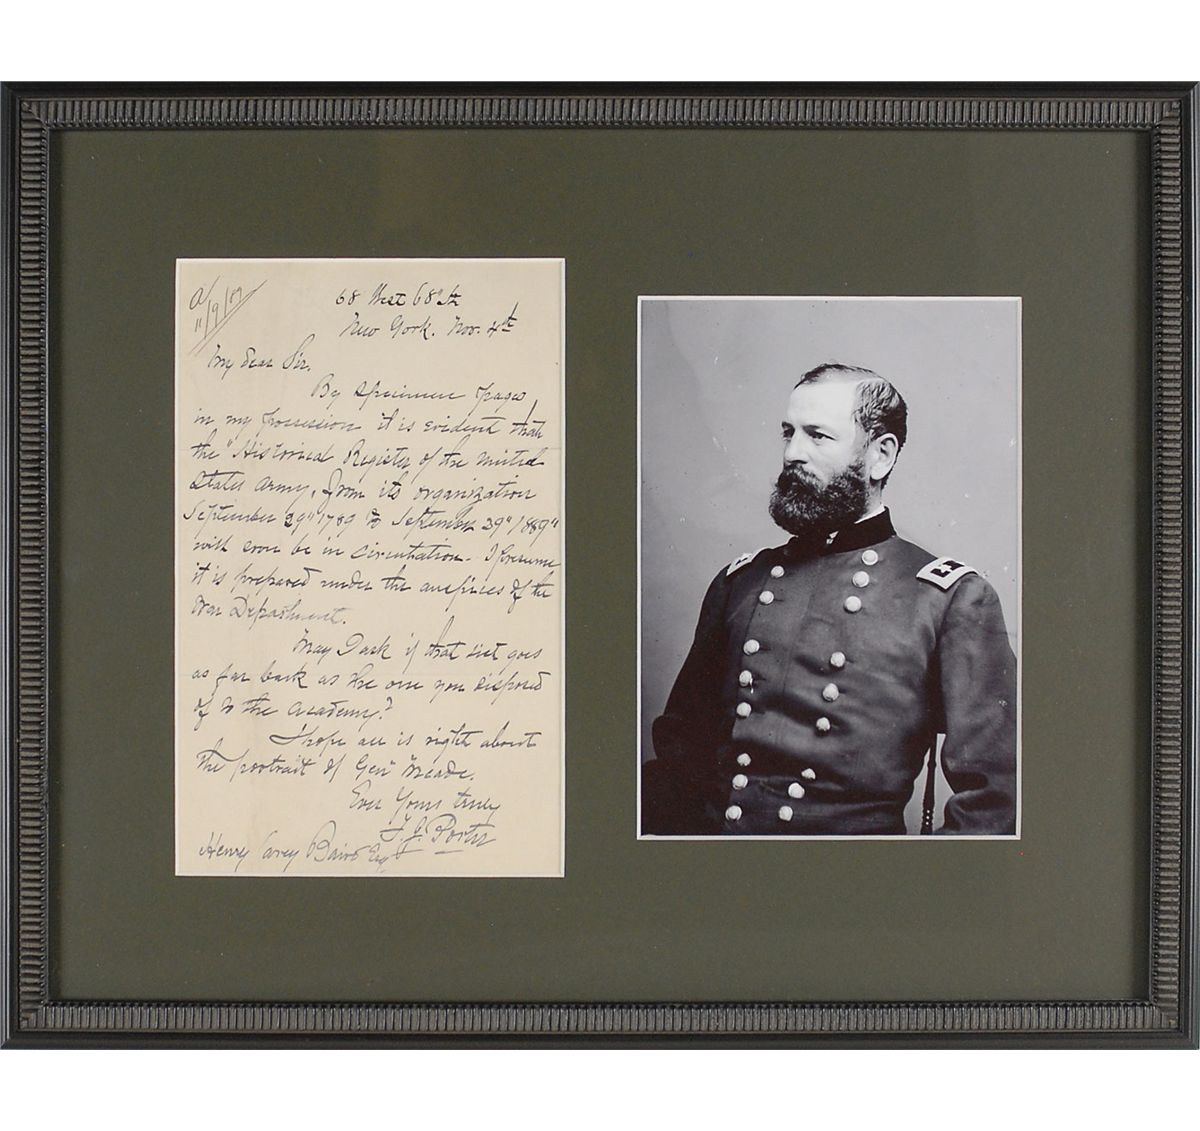 a/
11/9/89
68 West 68th St
New York. Nov. 4th
My dear Sir.
By specimen pages,
in my possession it is evident that
the "Historical Register of the United
States Army, from its organization
September 29" 1789 to September 29" 1889"
will soon be in circulation - I presume
it is prepared under the auspices of the
War Department.
May I ask if that list goes
as far back as the one you disposed
of to the Academy?
I hope all is right about
the portrait of Genl Meade.
Ever Yours truly
F. J. Porter
Henry Carey Baird Esq